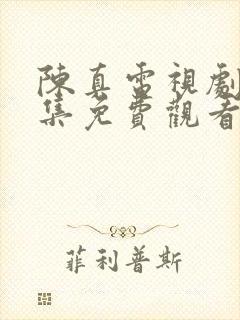 陳真電視劇
集免費觀看
菲利普斯